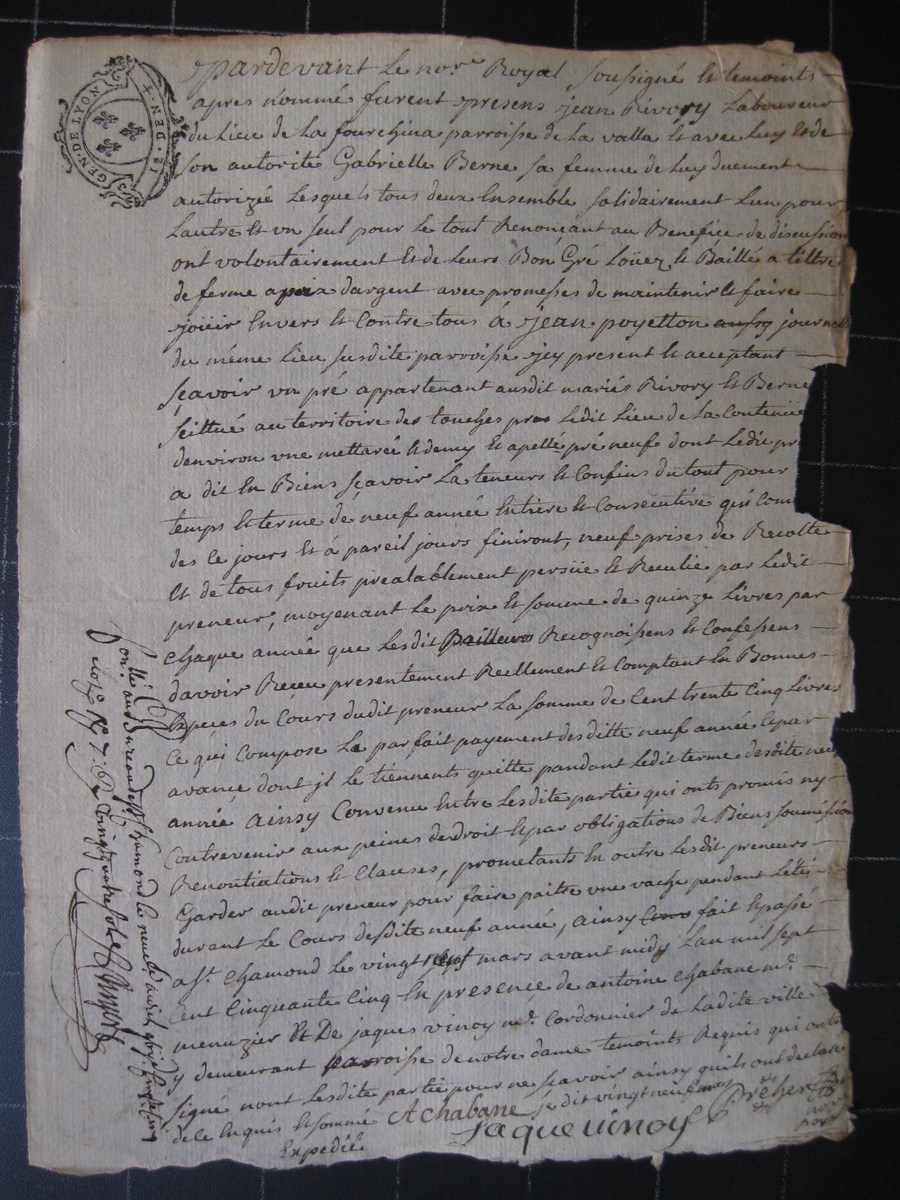 GEN·DE LYON
12·DEN·4
pardevant le nore Royal soussigné et temoints
apres nommé furent presens jean Rivory Laboureur
du Lieu de La fourchina parroisse de La valla et avec Luy et de
son autorité Gabrielle Berne sa femme de Luy duement
autorizéé Lesquels tous deux Ensemble solidairement Lun pour
Lautre et un seul pour le tout Renonçant au Benefice de discussion
ont volontairement et de Leurs Bon Gré Loüez et Baillé a tittre
de ferme a prix dargent avec promesses de maintenir et faire
joüir Envers et Contre tous à jean poyetton journ
du même lieu susdite parroisse jcy present et acceptant
sçavoir un pré appartenant ausdit mariés Rivory et Berne
scittué au territoire des touches pres ledit Lieu de la Contenüe
denviron une mettareé et demy et apellé pré neuf dont Ledit pr
a dit En Biens sçavoir La teneurs et Confins du tout pour
temps et terme de neuf année Entiere et Consecutive qui Com
des Ce jours et à pareil jours finiront, neuf prises de Recolte
et de tous fruits prealablement persüe et Reculie par Ledit
preneur, moyenant Le prix et somme de quinze Livres par
Chaque année que Lesdit Bailleurs Recognoissens et Confessens
davoir Reçeu presentement Reellement et Comptant En Bonnes
Especes du Cours dudit preneur La somme de Cent trente Cinq Livres
Ce qui Compose Le parfait payement desditte neuf année et par
avance dont jl le tiennents quitte pandant Ledit terme desdite neu
année, ainsy Convenu Entre Lesdite partie qui onts promis ny
Contrevenir aux peines de droit et par obligations de Biens soumission
Renontiations et Clauses, prometants En outre Lesdit preneurs
Garder audit preneur pour faire paitre une vache pendant Lété
durant Le Cours desdite neuf année, ainsy fait et passé
a St. Chamond Le vingt neuf mars avant midy Lan mil sept
Cent Cinquante Cinq En presence de antoine Chabane md.
menuzier Et De jaques vinoy md. Cordonnier de Ladite ville
y demeurant parroisse de notre dame temoints Requis qui onts
signé nont Lesdite partie pour ne sçavoir ainsy quils ont declaré
de Ce Enquis et sommé AChabane Le dit vingt neuf mars
Jaque vinoy
Expedié